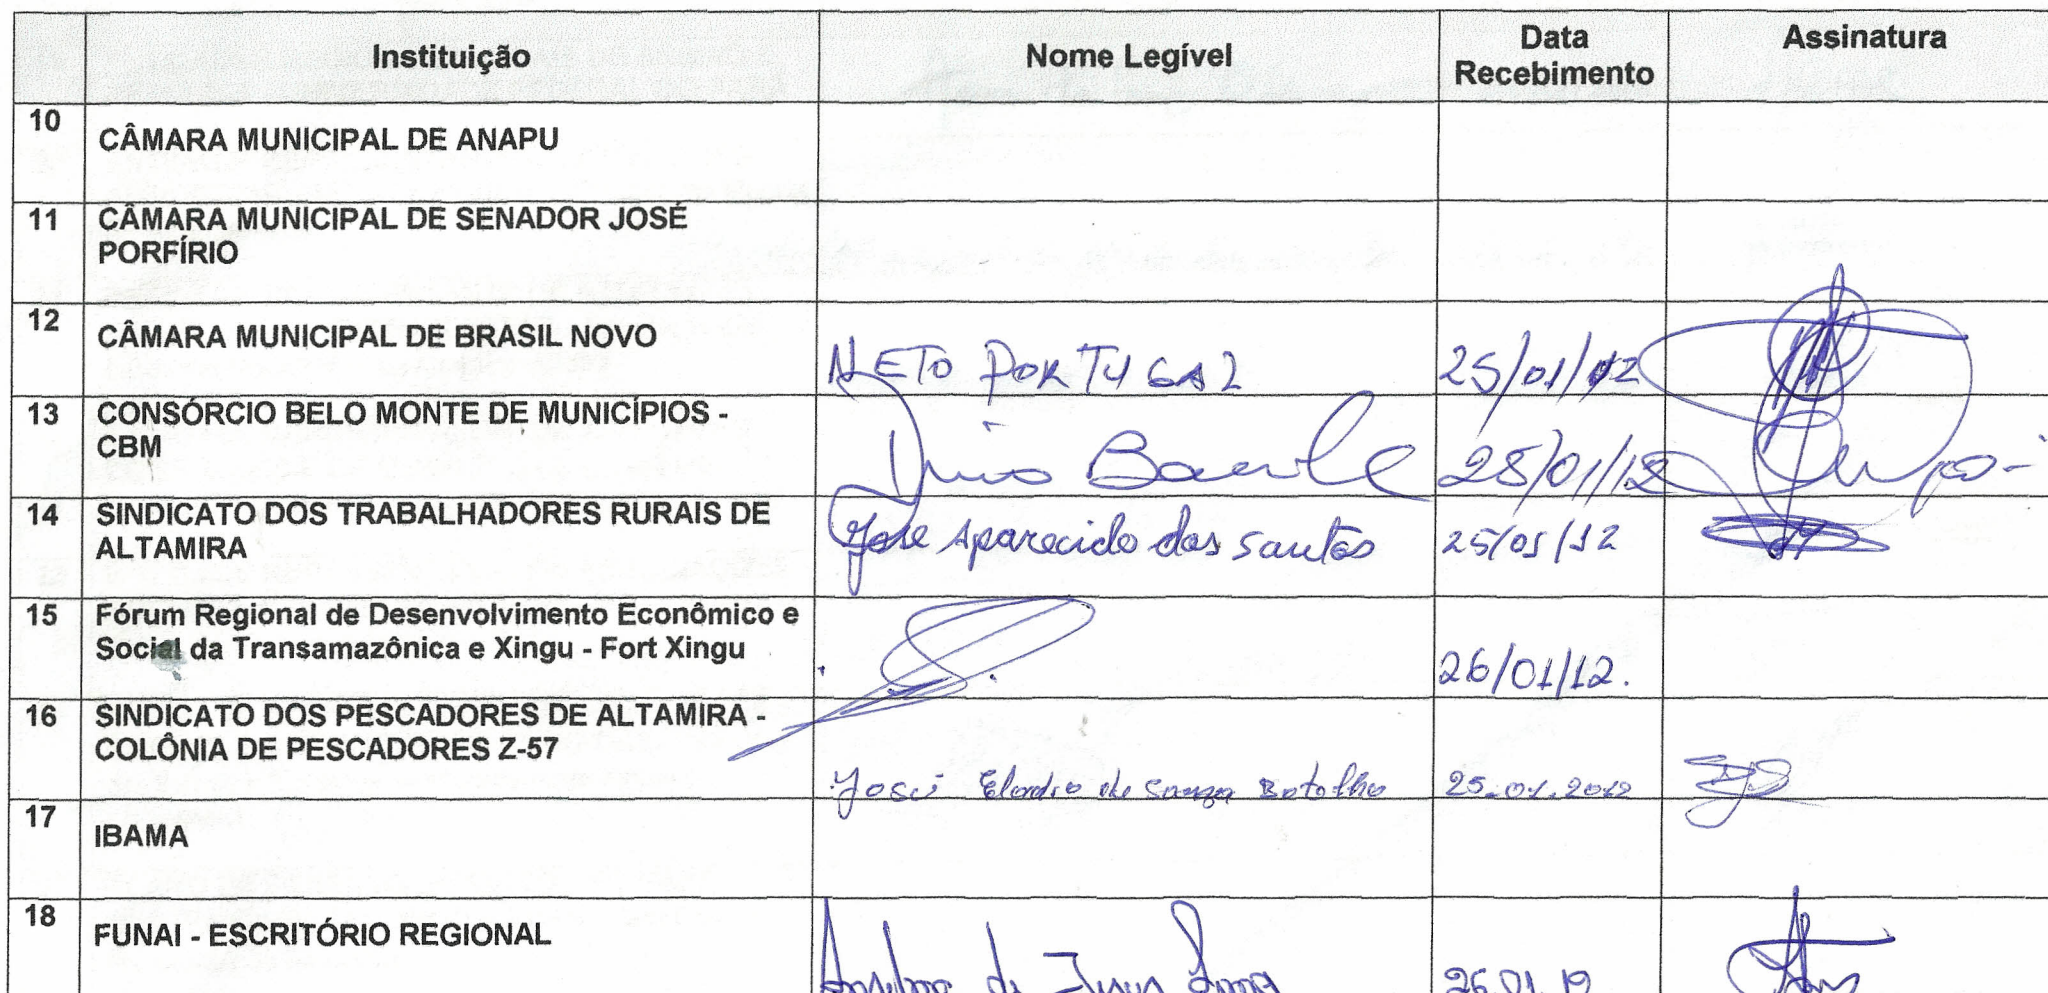 Instituição Nome Legível Data Recebimento Assinatura
10 CÂMARA MUNICIPAL DE ANAPU
11 CÂMARA MUNICIPAL DE SENADOR JOSÉ
PORFÍRIO
12 CÂMARA MUNICIPAL DE BRASIL NOVO NETO PORTUGAL 25/01/12
13 CONSÓRCIO BELO MONTE DE MUNICÍPIOS -
CBM 25/01/12
14 SINDICATO DOS TRABALHADORES RURAIS DE
ALTAMIRA Jose Aparecido dos Santos 25/01/12
15 Fórum Regional de Desenvolvimento Econômico e
Social da Transamazônica e Xingu - Fort Xingu 26/01/12.
16 SINDICATO DOS PESCADORES DE ALTAMIRA -
COLÔNIA DE PESCADORES Z-57
José de Souza Botelho 25.01.2012
17 IBAMA
18 FUNAI - ESCRITÓRIO REGIONAL
de Jesus 26.01.12